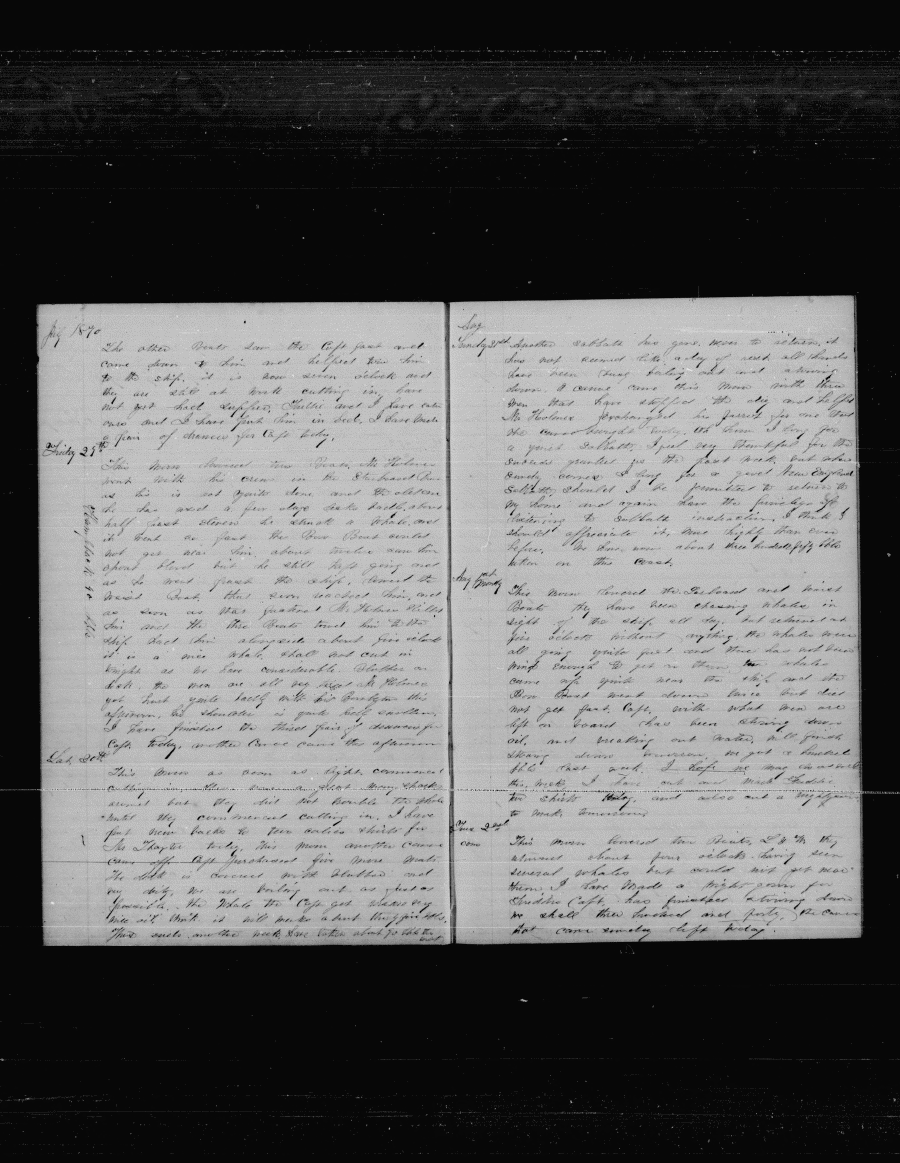 July 1870
The other Boats saw the Capt fast and
came down to him and helped tow him
to the ship, it is now seven oclock and
they are still at work cutting in, have
not yet had supper, Freddie and I have eaten
ours and I have put him in bed, I have made
a pair of drawers for Capt today.
Friday 29th
This morn lowered two Boats, Mr Holmes
went with his crew in the Starboard Boat
as his is not quite done and the
he has used a few days leaks badly, about
half past eleven he struck a whale, and
it went so fast the Bow Boat could
not get near him, about twelve saw him
spout blood but he still kept going and
as he went past the ship, lowered the
Waist Boat, they soon reached him, and
as soon as was fastened Mr Holmes killed
him and the three Boats towed him to the
ship had him alongside about five oclock
it is a nice whale, shall not cut in
tonight as we have considerable blubber on
deck, the men are all very tired Mr Holmes
got hurt quite badly with his this
afternoon, his shoulder is quite bad
I have finished the third pair of drawers for
Capt. today, another Canoe came this afternoon
Humpback 40 bbls
Sat. 30th
This morn as soon as light, commenced
cutting in, there were a great many sharks
around but they did not trouble the whale
until they commenced cutting in, I have
put new backs to two calico shirts for
the Capt today, this morn another canoe
came off, Capt purchased five more
The deck is covered with blubber and
very dirty, we are boiling out as fast as
possible, the Whale the Capt got makes very
nice oil think it will make about thirty five bbls,
Thus ends another week have taken about 90 bbls this
week
Aug
Sunday 31st Another sabbath has gone never to return, it
has not seemed like a day of rest all hands
have been busy boiling out and stowing
down. A canoe came this morn with three
men that have stopped the day and helped
Mr Holmes exchanged his parrot for one that
the canoe brought today. Oh how I long for
a quiet Sabbath, I feel very thankful for the
success granted us the past week, but when
Sunday comes I long for a quiet New England
Sabbath, should I be permitted to return to
my home and again have the privilege of
listening to sabbath instruction, I think I
should appreciate it, more highly than ever
before. We have now about three hundred & fifty bbls
taken on this coast.
Aug 1st
Monday
This morn lowered the Larboard and Waist
Boats they have been chasing whales in
sight of the ship, all day, but returned at
five oclock without anything the whales were
all going quite fast and there has not been
wind enough to get on them two whales
came up quite near the ship and the
Bow Boat went down twice but did
not get fast, Capt, with what men are
left on board has been stowing down
oil, and breaking out water, will finish
stowing down tomorrow, we got a hundred
bbls last week. I hope we may do as well
this week I have cut and made Freddie
two shirts today, and also cut a night gown
to make tomorrow
Tues 2nd
This morn lowered two Boats, L & W they
returned about four oclock having seen
several whales but could not get near
them. I have made a night gown for
Freddie Capt, has finished stowing down
we shall three hundred and forty, the canoe
that came sunday left today.